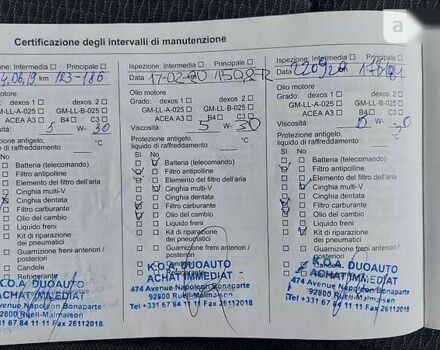 a
Certificazione degli intervalli di manutenzione
Ispezione: Intermedia Principale
4.06.19 km 123-186
Olio motore
Grado: dexos 1 dexos 2
GM-LL-A-025 GM-LL-B-025
ACEA A3 B4 C3
Viscosità: 5 W- 30
Protezione antigelo,
liquido di raffreddamento
Sì No
Batteria (telecomando)
Filtro antipolline
Elemento del filtro dell'aria
Cinghia multi-V
Cinghia dentata
Filtro carburante
Olio del cambio
Liquido freni
Kit di riparazione
dei pneumatici
Guarnizione freni anteriori /
posteriori
Candele
Refrigerante
K.O.A. DUOAUTO
ACHAT IMMEDIAT
474 Avenue Napoleon Bonaparte
92800 Rueil-Malmaison
Tel +331 67 84 11 11 Fax 26112018
Ispezione: Intermedia Principale
Data 17-02-20
Olio motore
Grado: dexos 1 dexos 2
GM-LL-A-025 GM-LL-B-025
ACEA A3 B4 C3
Viscosità: 5 W- 30
Protezione antigelo,
liquido di raffreddamento
Sì No
Batteria (telecomando)
Filtro antipolline
Elemento del filtro dell'aria
Cinghia multi-V
Cinghia dentata
Filtro carburante
Olio del cambio
Liquido freni
Kit di riparazione
dei pneumatici
Guarnizione freni anteriori /
posteriori
Candele
K.O.A. DUOAUTO
ACHAT IMMEDIAT
474 Avenue Napoleon Bonaparte
92800 Rueil-Malmaison
Tel +331 67 84 11 11 Fax 26112018
Ispezione: Intermedia Principale
Data
Olio motore
Grado: dexos 1 dexos 2
GM-LL-A-025 GM-LL-B-025
ACEA A3 B4 C3
Viscosità: W-
Protezione antigelo,
liquido di raffreddamento
Sì No
Batteria (telecomando)
Filtro antipolline
Elemento del filtro dell'aria
Cinghia multi-V
Cinghia dentata
Filtro carburante
Olio del cambio
Liquido freni
Kit di riparazione
dei pneumatici
Guarnizione freni anteriori /
posteriori
K.O.A. DUOAUTO
ACHAT IMMEDIAT
474 Avenue Napoleon Bonaparte
92800 Rueil-Malmaison
Tel +331 67 84 11 11 Fax 26112018